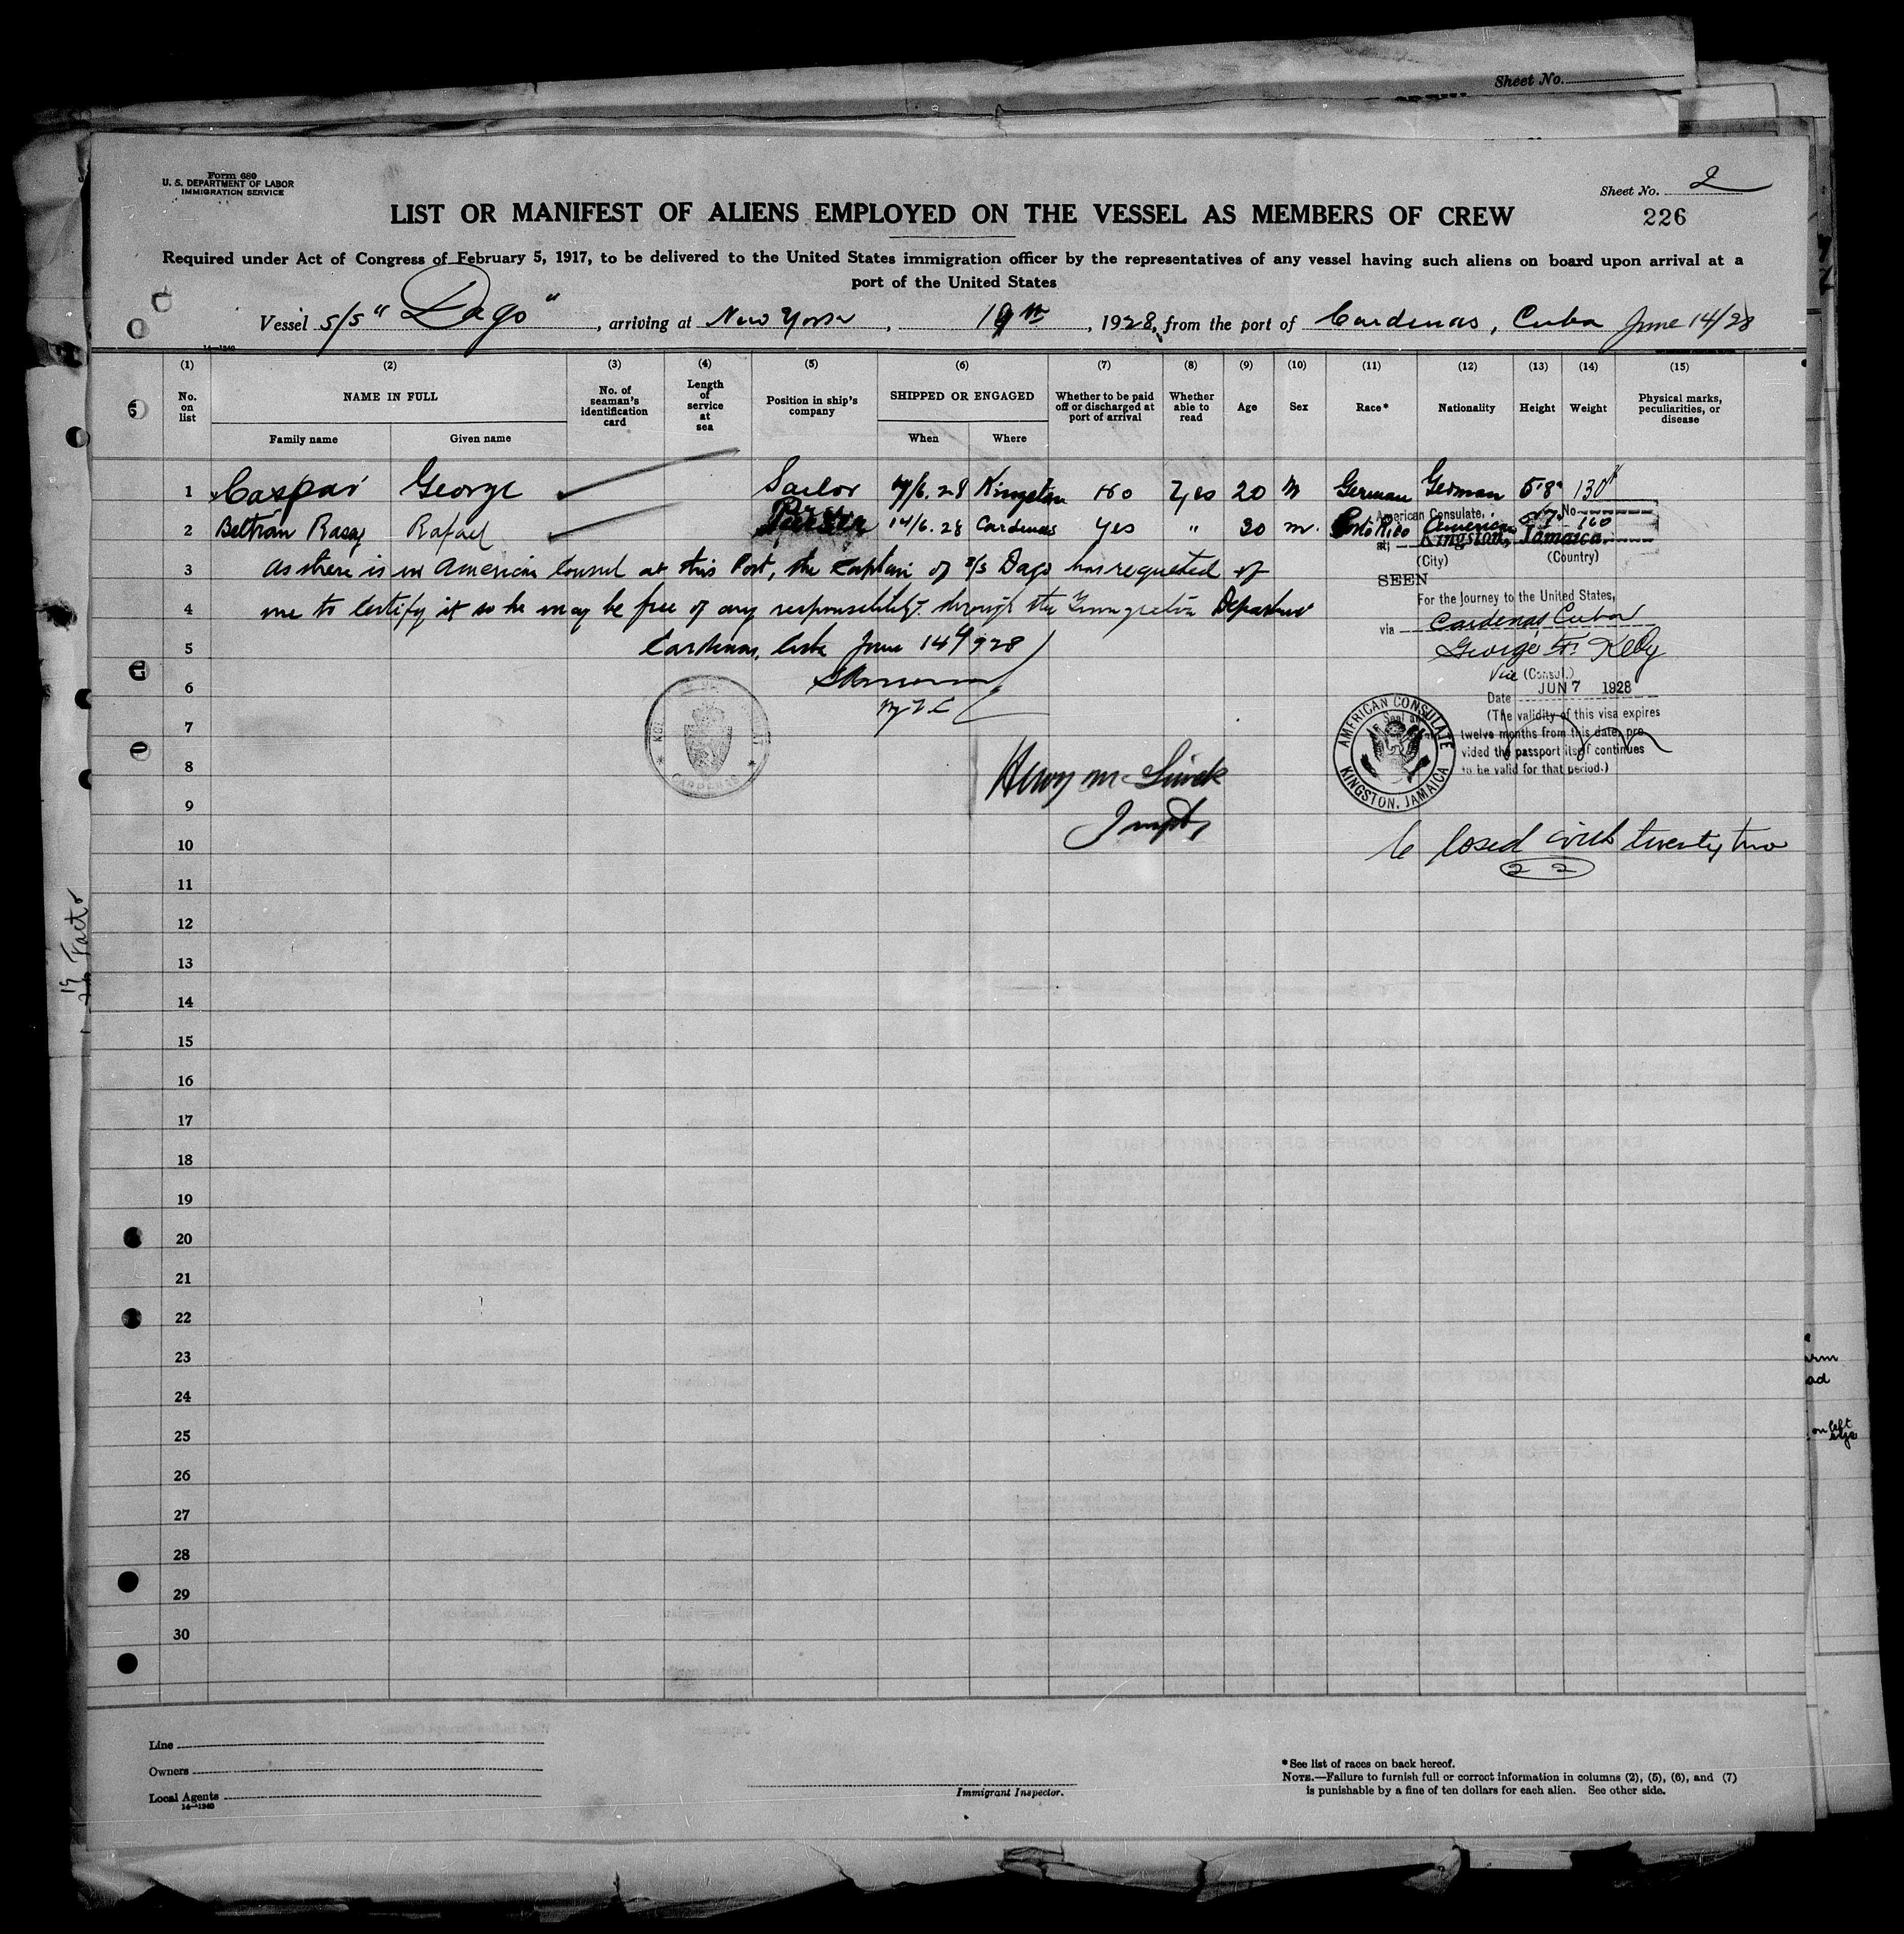 Sheet No.
Form 680
U. S. DEPARTMENT OF LABOR
IMMIGRATION SERVICE
Sheet No. 2
226
LIST OR MANIFEST OF ALIENS EMPLOYED ON THE VESSEL AS MEMBERS OF CREW
Required under Act of Congress of February 5, 1917, to be delivered to the United States immigration officer by the representatives of any vessel having such aliens on board upon arrival at a
port of the United States
Vessel S/S "Dago", arriving at New York, 19th, 1928, from the port of Cardenas, Cuba June 14/28
14—1240
(1) (2) (3) (4) (5) (6) (7) (8) (9) (10) (11) (12) (13) (14) (15)
No. on list NAME IN FULL No. of seaman's identification card Length of service at sea Position in ship's company SHIPPED OR ENGAGED Whether to be paid off or discharged at port of arrival Whether able to read Age Sex Race* Nationality Height Weight Physical marks, peculiarities, or disease
Family name Given name When Where
1 Caspar George Sailor 7/6.28 Kingston No Yes 20 M German German 5'8" 130
2 Beltran Rafael 14/6.28 Cardenas Yes " 30 m. Porto Rico American 5'7" 160
American Consulate, No.
at Kingston, Jamaica.
(City) (Country)
3 As there is no American Consul at this Port, the Captain of S/S Dago has requested of
SEEN
For the Journey to the United States,
4 me to Certify it so he may be free of any responsability through the Immigration Department
via Cardenas Cuba
5 Cardenas, Cuba June 14th 928
George F. Kelly
6
Vice (Consul.)
Date JUN 7 1928
7
(The validity of this visa expires
twelve months from this date, pro-
vided the passport itself continues
to be valid for that period.)
AMERICAN CONSULATE
KINGSTON, JAMAICA
CARDENAS
8
Henry
9
Inspt,
10
Closed with twenty two
22
11
12
13
14
15
16
17
18
19
20
21
22
23
24
25
26
27
28
29
30
Line
Owners
Local Agents
14—1240
Immigrant Inspector.
*See list of races on back hereof.
NOTE.—Failure to furnish full or correct information in columns (2), (5), (6), and (7)
is punishable by a fine of ten dollars for each alien. See other side.
on left